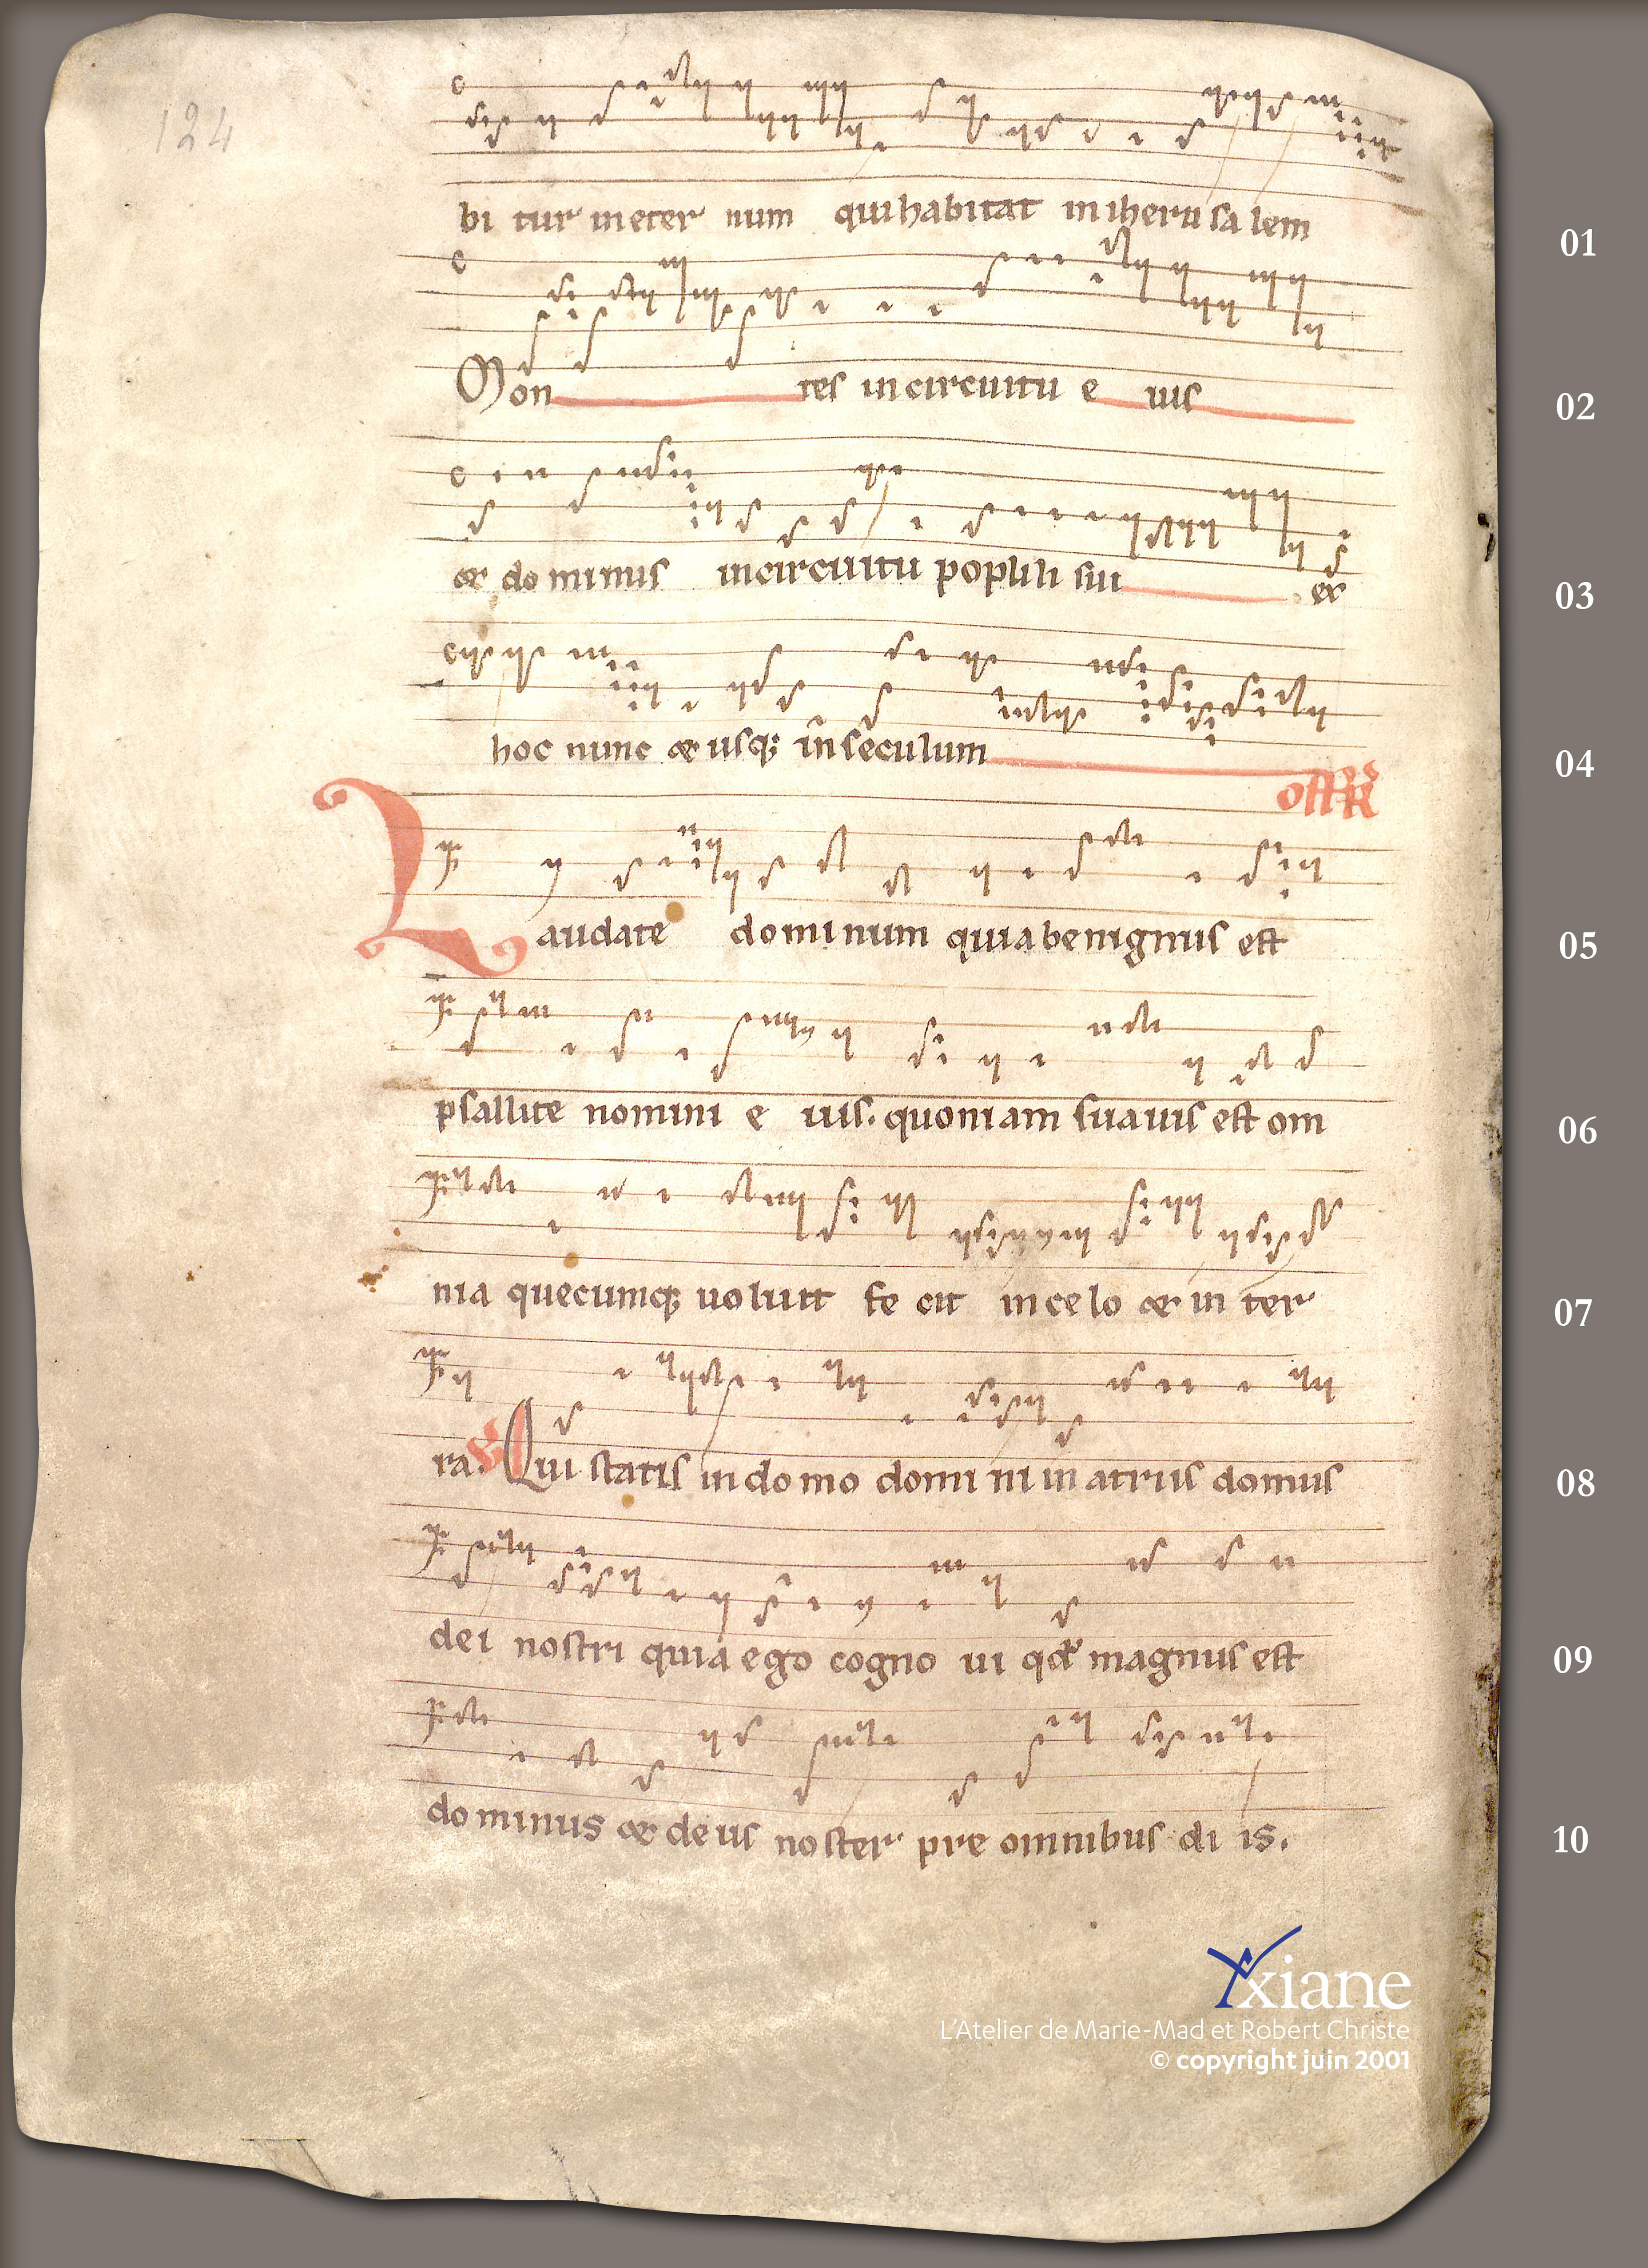 124
bi tur in eter num qui habitat in iherusalem
01
Mon tes in circuitu e ius
02
& dominus in circuitu populi sui ex
03
hoc nunc & usq; in seculum
04
off R
Laudate dominum quia benignus est
05
psallite nomini e ius. quoniam suauis est om
06
nia quecumq; uoluit fe cit in celo & in ter
07
ra. V Qui statis in domo domi ni in atriis domus
08
dei nostri quia ego cogno ui qd magnus est
09
dominus & deus noster pre omnibus di is.
10
Yxiane
L'Atelier de Marie-Mad et Robert Christe
© copyright juin 2001